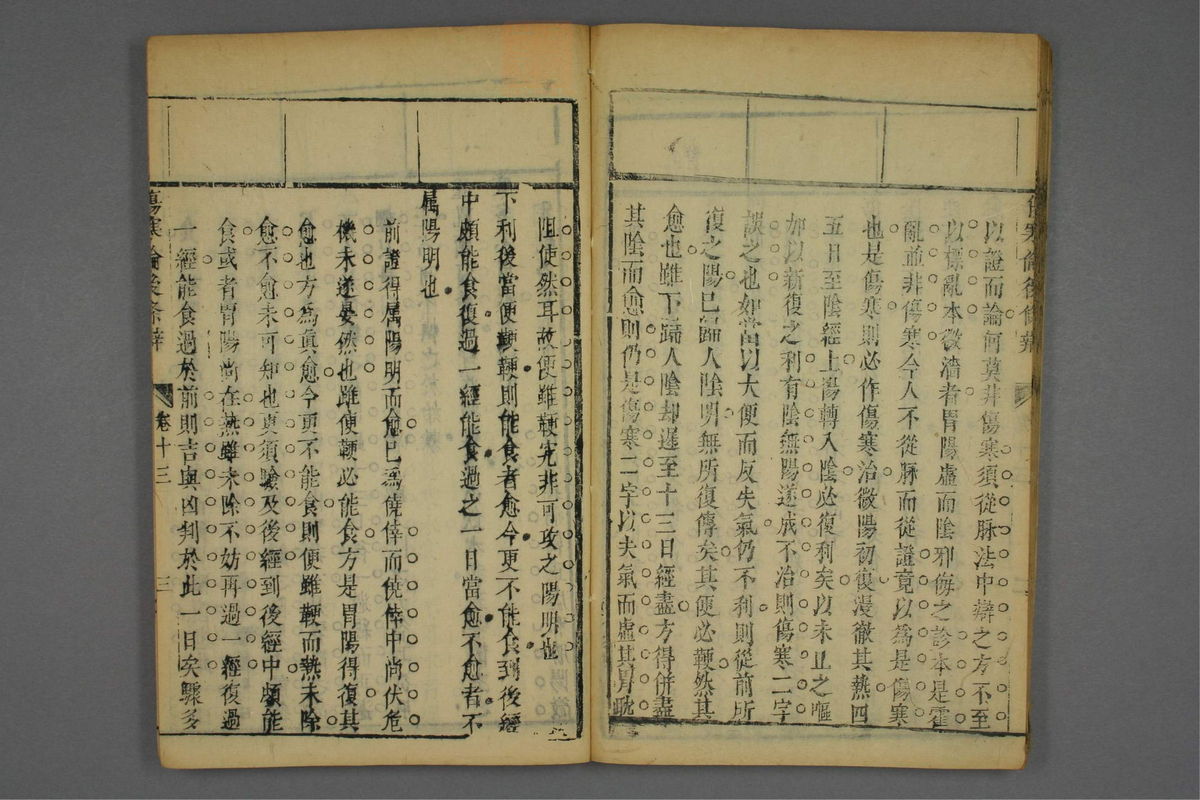 傷寒論後條辨
以證而論何莫非傷寒須從脉法中辯之方不至
以標亂本微濇者胃陽虛而陰邪侮之診本是霍
亂並非傷寒今人不從脉而從證竟以爲是傷寒
也是傷寒則必作傷寒治微陽初復漫徹其熱四
五日至陰經上陽轉入陰必復利矣以未止之嘔
加以新復之利有陰無陽遂成不治則傷寒二字
誤之也如當以大便而反失氣仍不利則從前所
復之陽已歸人陰明無所復傳矣其便必鞕然其
愈也雖下歸人陰却遲至十三日經盡方得併盡
其陰而愈則仍是傷寒二字以夫氣而虛其胃
阻使然耳故便雖鞕究非可攻之陽明也
下利後當便鞕鞕則能食者愈今更不能食到後經
中頗能食復過一經能食過之一日當愈不愈者不
属陽明也
前證得属陽明而愈已爲僥倖而僥倖中尚伏危
機未遂晏然也雖便鞕必能食方是胃陽得復其
愈也方爲眞愈今更不能食則便雖鞕而熱未除
愈不愈未可知也更須驗及後經到後經中頗能
食或者胃陽尚在熱雖未除不妨再過一經復過
一經能食過於前則吉與凶判於此一日矣驟多
傷寒論後條辨
卷十三
三